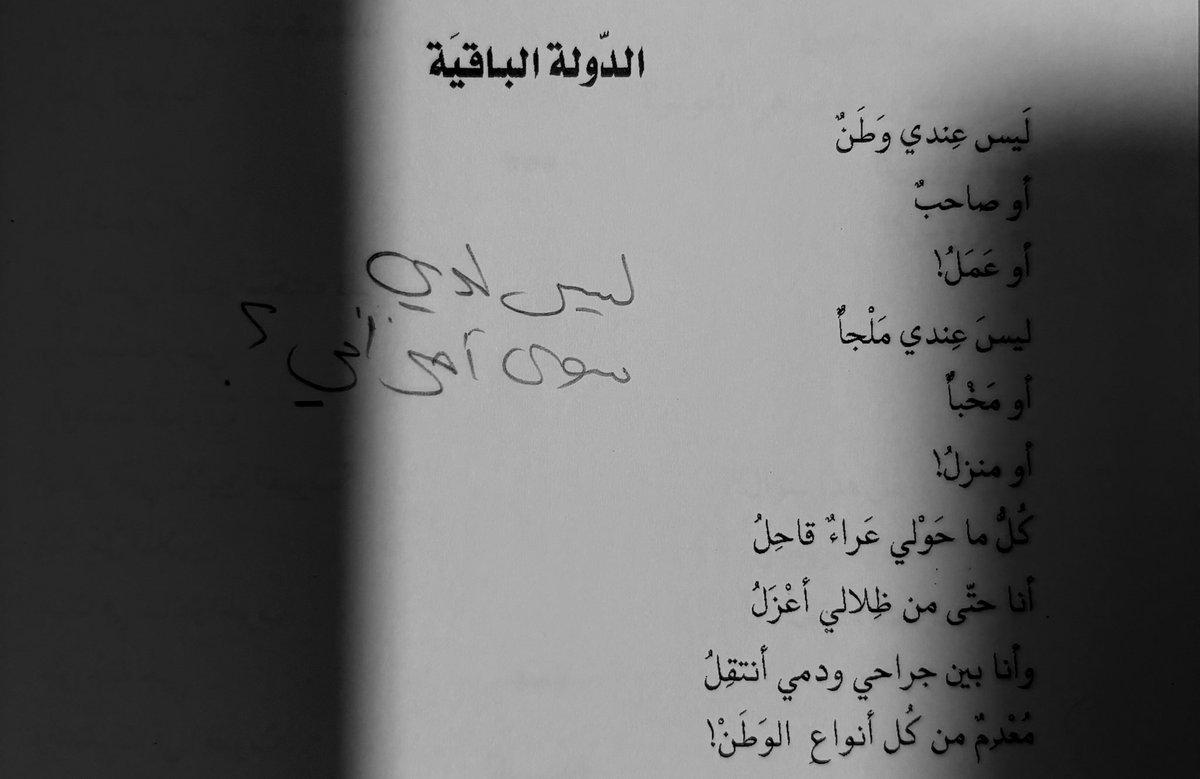 الدّولة الباقيَة
لَيس عِندي وَطَنٌ
أو صاحبٌ
أو عَمَلُ!
ليسَ عِندي مَلْجأٌ
أو مَخْبأٌ
أو منزلُ!
كُلُّ ما حَوْلي عَراءٌ قاحِلُ
أنا حتّى من ظِلالي أعْزَلُ
وأنا بين جراحي ودمي أنتقِلُ
مُعْدِمٌ من كُل أنواعِ الوَطَنْ!
ليس لدي
سوى